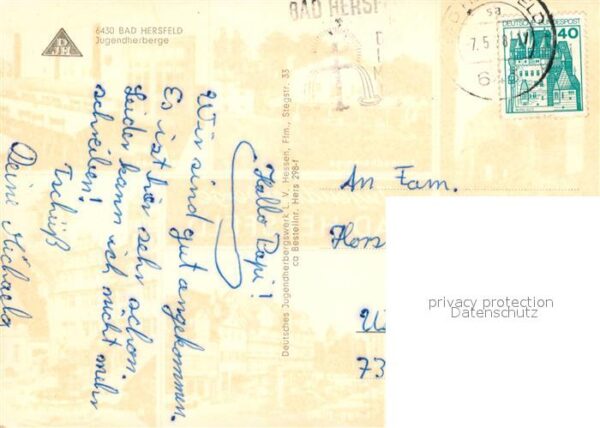 6430 BAD HERSFELD
Jugendherberge
DJH
Hallo Papi!
Wir sind gut angekommen.
Es ist hier sehr schön.
Leider kann ich nicht mehr
schreiben!
Tschüß
Deine Michaela
Deutsches Jugendherbergswerk L. V. Hessen, Ffm., Stegstr. 33
ca Bestellnr. Hers 298-f
BAD HERSF
7.5
DEUTSCHE BUNDESPOST
40
An Fam.
Hors
73
privacy protection
Datenschutz